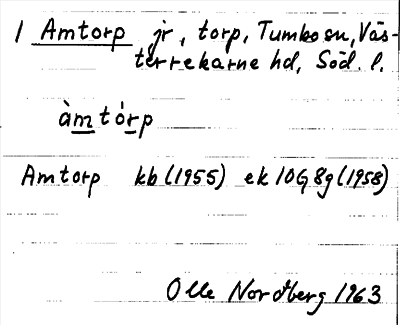 1 Amtorp jr, torp, Tumbo sn, Väs-
terrekarne hd, Söd. l.
àmtórp
Amtorp kb (1955) ek 10G8g (1958)
Olle Nordberg 1963